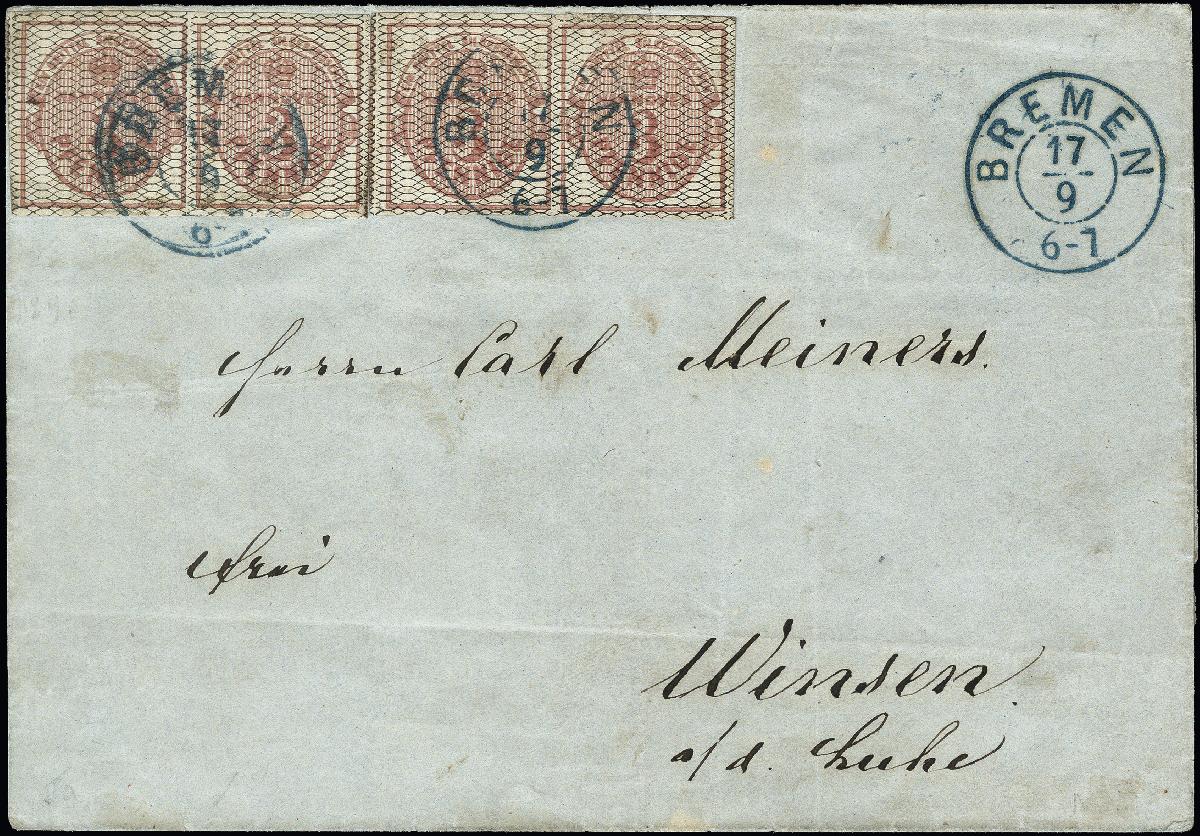 BREM
17
9
6-
BR N
9
6-7
BREMEN
17
9
6-7
Herrn Carl Meiners.
frei
Winsen.
a/d. Luhe